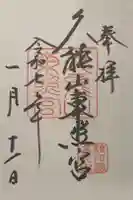 奉拝
久能山東照宮
令和七年
一月十一日